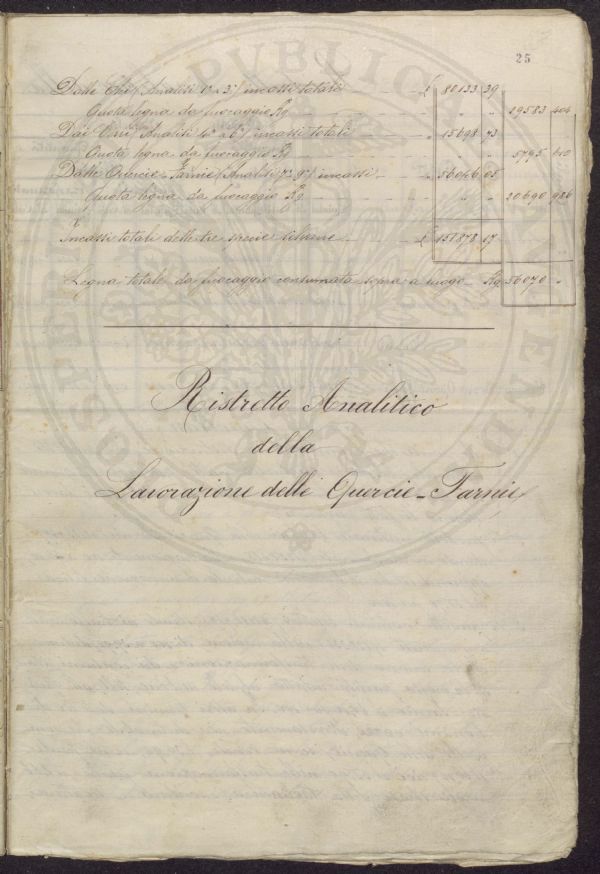 25
Dalle Elci (Analisi 1ª a 3ª) incassi totali £ 80133 39
Quota legna da fuocaggio Kg " " 29583 404
Dai Cerri (Analisi 4ª a 6ª) incassi totali " 15698 73
Quota legna da fuocaggio Kg " " 5795 610
Dalle Quercie-Farnie (Analisi 7ª a 9ª) incassi " 56046 05
Quota legna da fuocaggio Kg " " 20690 986
Incassi totali delle tre specie £ 151878 17
Legna totale da fuocaggio consumata sopra a luogo Kg 56070 "
Ristretto Analitico
della
Lavorazione delle Quercie-Farnie